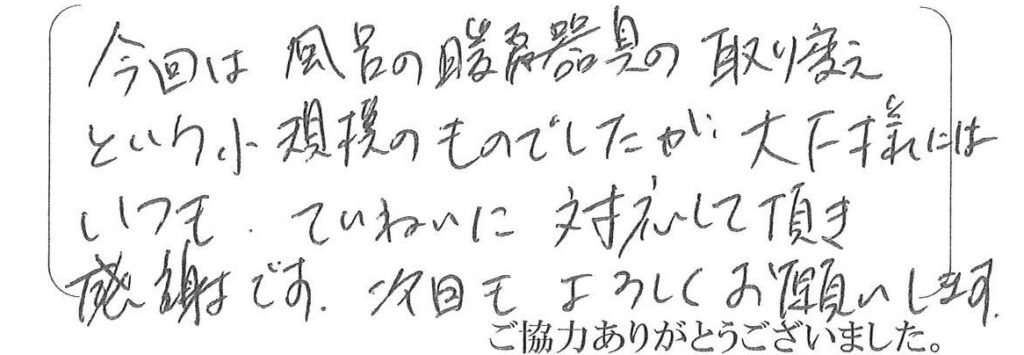 今回は風呂の暖房器具の取り変え
という小規模のものでしたが、大下様には
いつも、ていねいに対応して頂き
感謝です。次回もよろしくお願いします。
ご協力ありがとうございました。